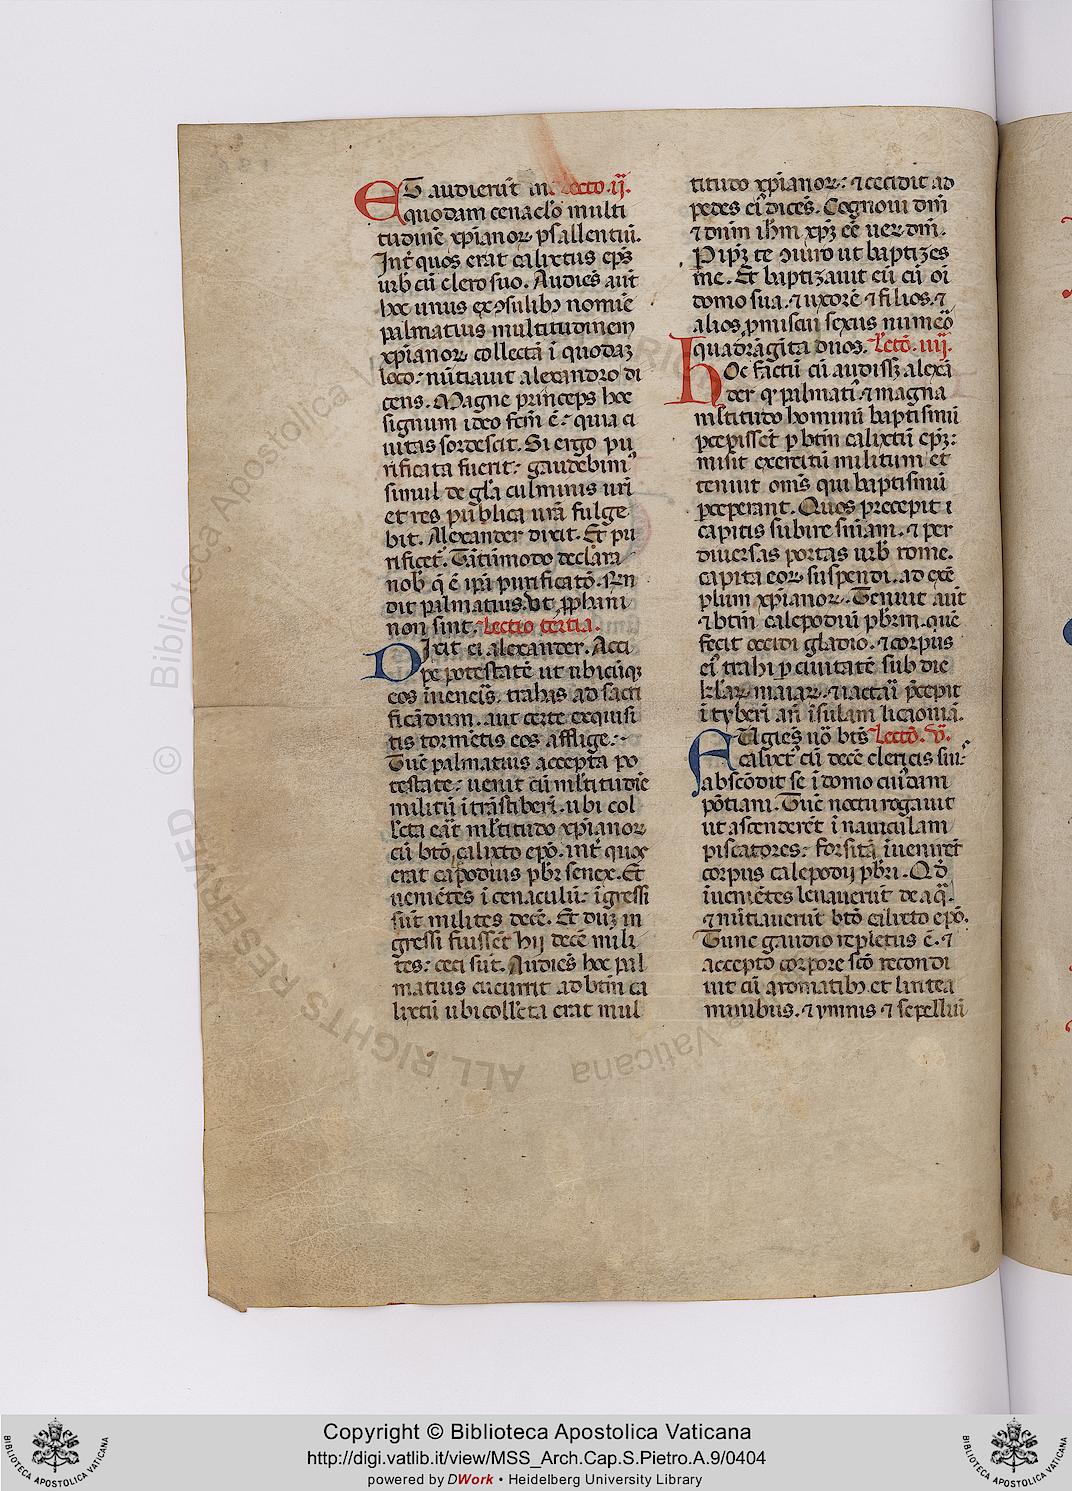 ET audierūt in lectio .ii.
quodam cenac̄lo multi
tudinē xp̄ianoꝝ psallentiū.
Int̄ quos erat calixtus ep̄s
urb̄ cū clero suo. Audiēs aut̄
hoc unus ex ꝯsulibꝫ nomīe
palmatius multitudinem
xp̄ianoꝝ collectā ī quodaꝫ
loco: nūtiauit alexandro di
cens. Magne princeps hoc
signum ideo fcm̄ ē: quia ci
uitas sordescit. Si ergo pu
rificata fuerit: gaudebim᷒
simul de gl̄a culminis ur̄i
et res publica ur̄a fulge
bit. Alexander dixit. Et pu
rificet᷑. Tātūmodo declara
nob̄ q̄ ē ip̄a purificatō. Rn̄
dit palmatius. Vt ꝓphani
non sint. Lectio tertia.
DIxit ei alexander. Acci
pe potestatē ut ubicūqꝫ
eos īueneris̄. trahas ad sacri
ficādum. aut certe exquisi
tis tormētis eos afflige.
Tūc palmatius accepta po
testate: uenit cū ml̄titudīe
militū ī trāstiberī. ubi col
lecta erāt ml̄titudo xp̄ianoꝝ
cū btō calixto epō. int̄ quos
erat cal̄podius pbr̄ senex. Et
uenīētes ī cenaculū: īgressi
sūt milites decē. Et dūꝫ in
gressi fuissēt hii decē mili
tes: ceci sūt. Audiēs hoc pal
matius cucurrit ad btm̄ ca
lixtū ubi collecta erat mul
titudo xp̄ianoꝝ: ⁊ cecidit ad
pedes ei᷒ dicēs. Cognoui dm̄
⁊ dnm̄ ihm̄ xp̄ꝫ eē ueꝝ dm̄.
P ip̄ꝫ te ꝯiuro ut baptizes
me. Et baptizauit eū cū oī
domo sua. ⁊ uxorē ⁊ filios. ⁊
alios ꝓmiscui sexus numeō
quadrāgita duos. Lectō. iiii.
HOc factū cū audissꝫ alexā
der qꝛ palmati᷒ ⁊ magna
ml̄titudo hominū baptismū
ꝑcepisset p btm̄ calixtū ep̄ꝫ:
misit exercitū militum et
tenuit om̄s qui baptismū
ꝑceperant. Quos precepit ī
capitis subire sn̄iam. ⁊ per
diuersas portas urb̄ rome.
capita eoꝝ suspendi. ad exē
plum xp̄ianoꝝ. Tenuit aut̄
⁊ btm̄ calepodiū pbr̄m. quē
fecit occidi gladio. ⁊ corpus
ei᷒ trahi ꝑ ciuitatē sub die
kl̄aꝝ maiaꝝ. ⁊ iactari p̄cepit
ī tyberī an̄ īsulam licaoniā.
FUgiēs ūo btūs Lectō. v.
calixt᷒ cū decē clericis suis
abscōdit se ī domo cui᷒dam
pōtiani. Tūc noctu rogauit
ut ascenderēt ī nauiculam
piscatores: forsitā īuenirēt
corpus calepodij pbr̄i. Qd̄
īuenīētes leuauerūt de aq̄.
⁊ nūtiauerūt btō calixto epō.
Tunc gaudio repletus ē. ⁊
accepto corpore scō recondi
uit cū aromatibꝫ et lintea
minibus. ⁊ ymnis ⁊ sepelluī
© Biblioteca Apostolica Vaticana
ALL RIGHTS RESERVED
BIBLIOTECA APOSTOLICA VATICANA
Copyright © Biblioteca Apostolica Vaticana
http://digi.vatlib.it/view/MSS_Arch.Cap.S.Pietro.A.9/0404
powered by DWork • Heidelberg University Library
BIBLIOTECA APOSTOLICA VATICANA